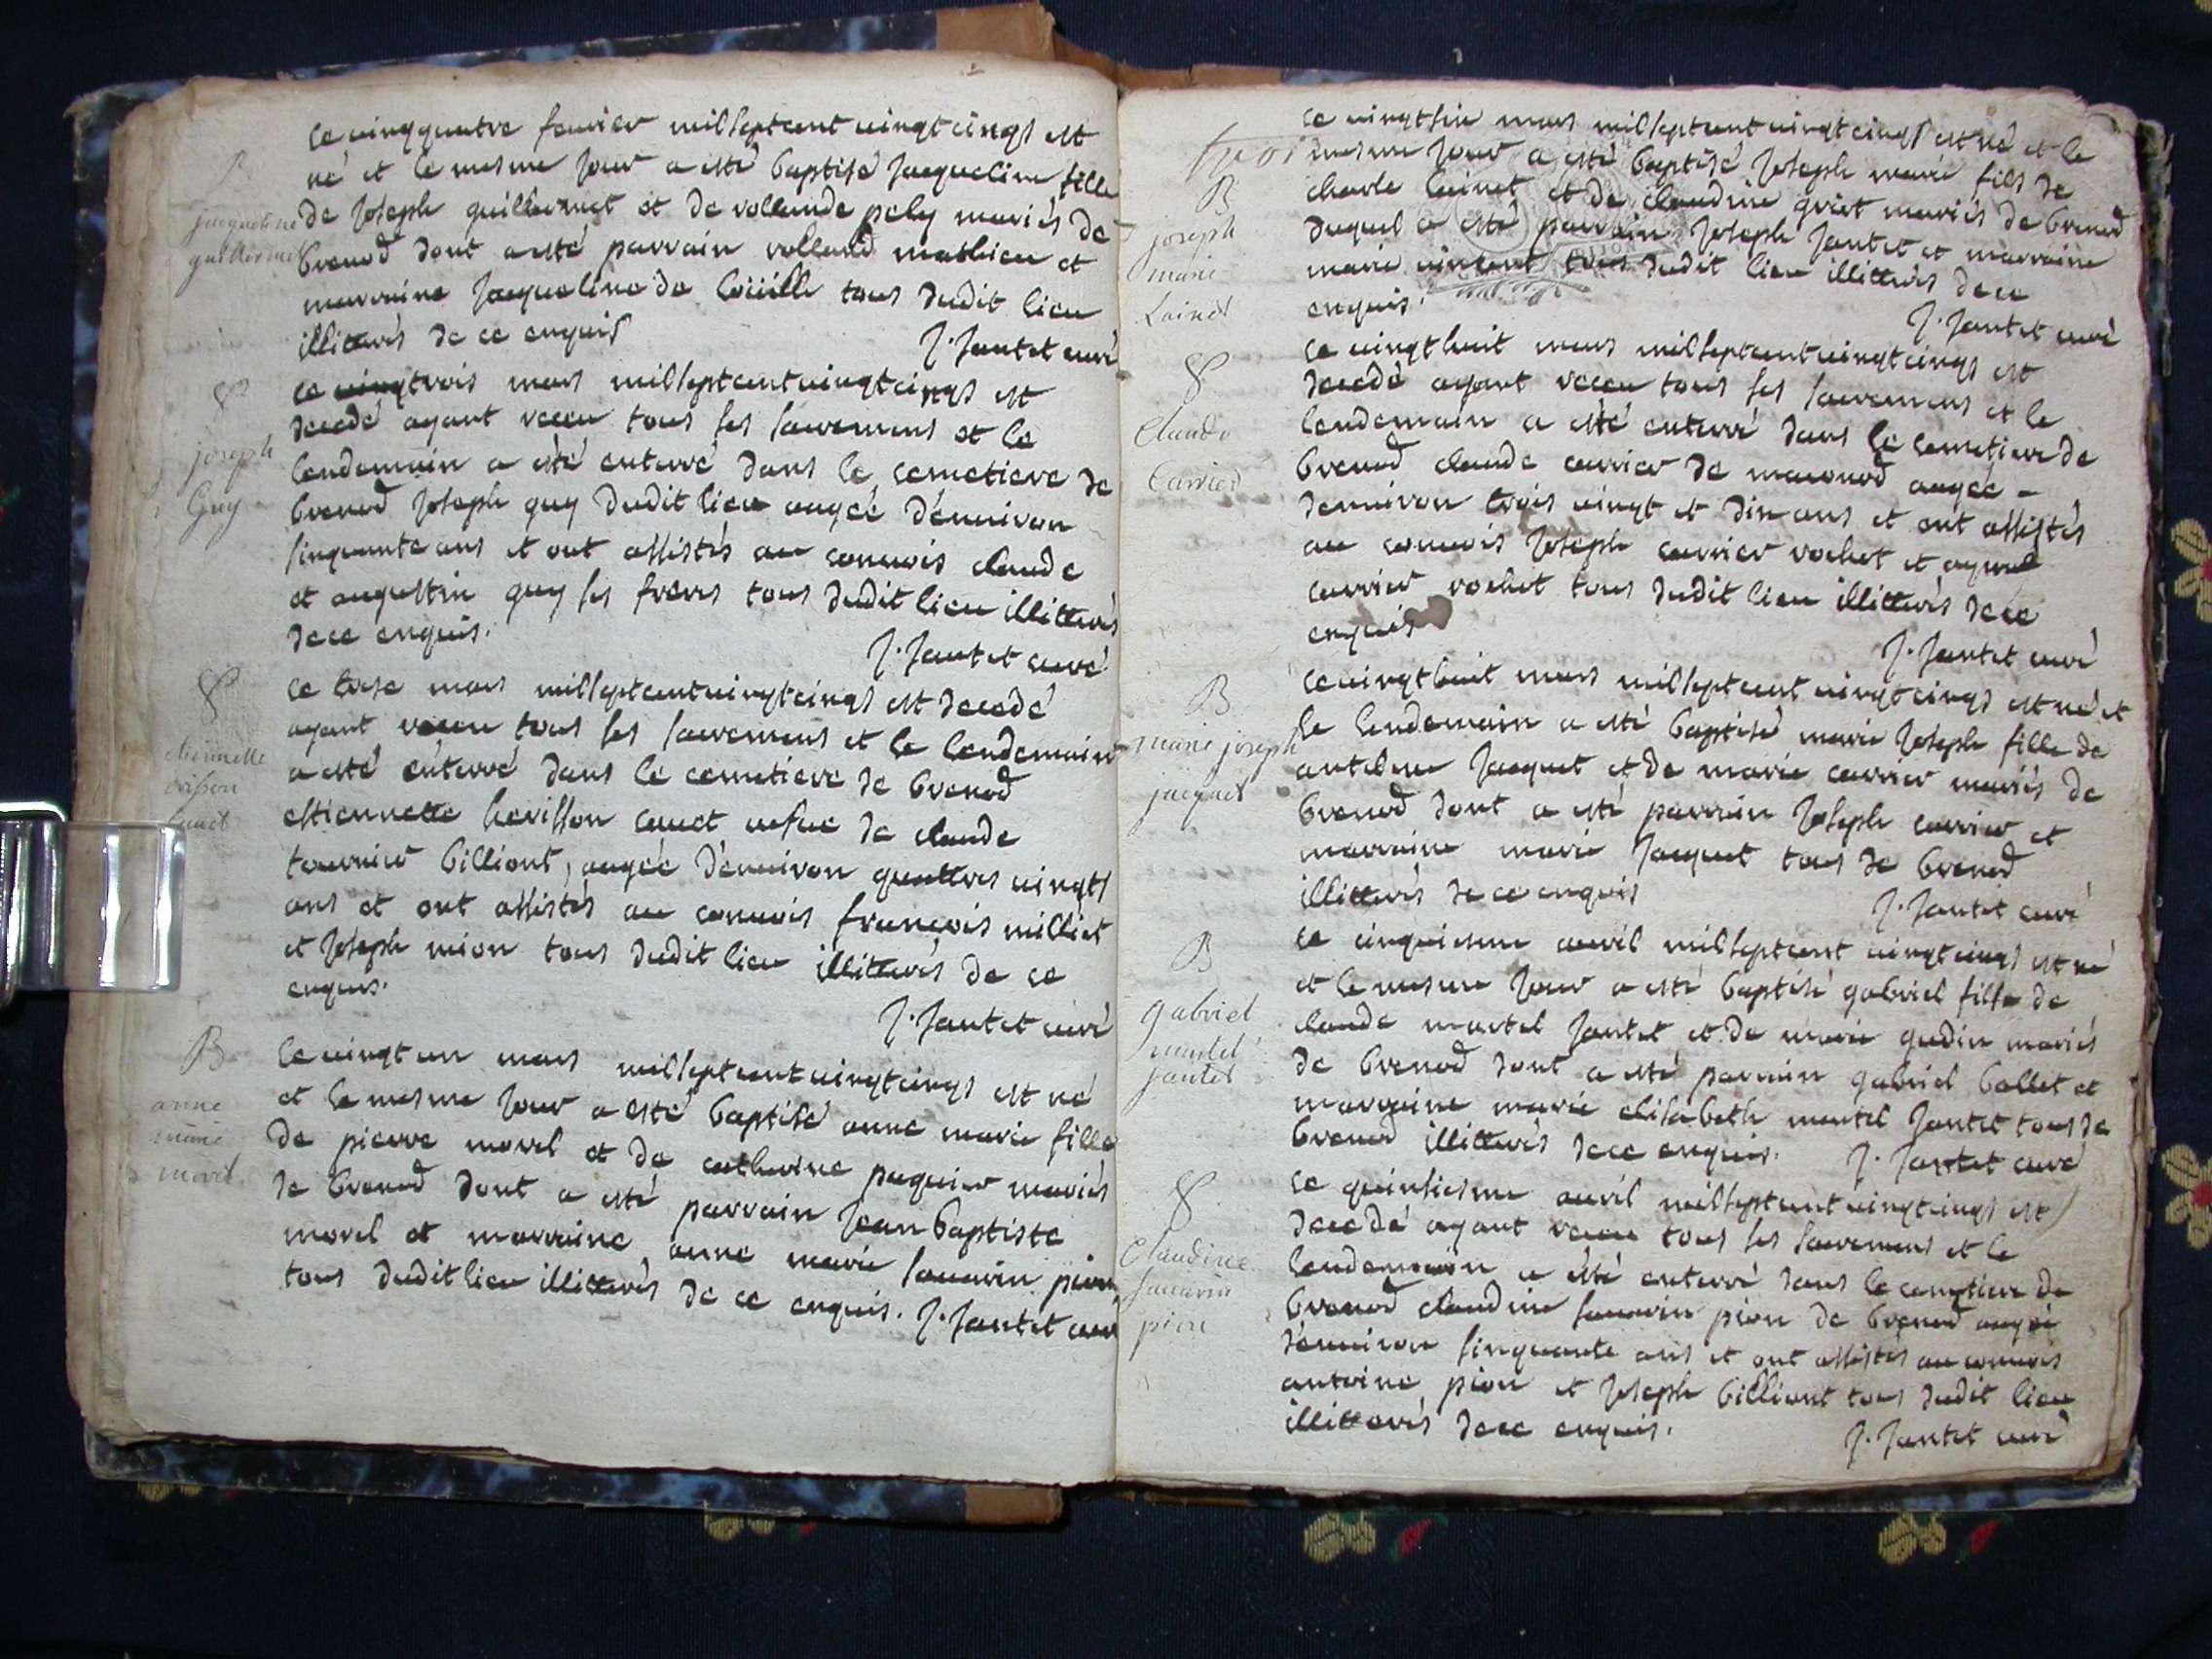 ce vingquatre fevrier milseptcent vingt cinqs est
né et le mesme jour a esté baptisé jacqueline fille
B
jacqueline
guillermet
de joseph guillermet et de rollande pely mariés de
brenod dont a esté parrain rolland mathieu et
marraine jacqueline de
tous dudit lieu
illitterés de ce enquis
J. Jantet curé
ce vingtrois mars milseptcentvingtcinqs est
decedé ayant receu tous ses sacremens et le
joseph
Guy
lendemain a esté enterré dans le cemetiere de
brenod joseph guy dudit lieu aagéé d'environ
sinquante ans et ont assistés au convois claude
et augustin guy ses freres tous dudit lieu illitterés
dece enquis.
J. Jantet curé
ce mars milseptcentvingtcinqs est decedé
ayant receu tous ses sacremens et le lendemain
a esté enterré dans le cemetiere de brenod
etiennette
orisson
cauet
estiennette herisson cauet vefve de claude
tournier billiont, aagéé d'environ quattres vingts
ans et ont assistés au convois françois milliet
et joseph mion tous dudit lieu illitterés de ce
enquis.
J. Jantet curé
B
anne
marie
morel
le vingt un mars milseptcentvingtcinqs est né
et le mesme jour a esté baptisé anne marie fille
de pierre morel et de catherine paquier mariés
de brenod dont a esté parrain jean baptiste
morel et marraine anne marie savarin pion
tous dudit lieu illitterés de ce enquis. J. Jantet curé
trois
ce vingtsix mars milseptcent vingt cinqs est né et le
mesme jour a esté baptisé joseph marie fils de
B
joseph
marie
Lainet
charle lainet et de claudine griot mariés de brenod
duquel a esté parrain joseph jantet et marraine
marie vincent tous dudit lieu illitterés dece
enquis.
J. Jantet curé
ce vingthuit mars milseptcentvingtcinqs est
decedé ayant receu tous ses sacremens et le
Claude
Carrier
lendemain a esté enterré dans le cemetiere de
brenod claude carrier de maconod aagéé
denviron trois vingt et dix ans et ont assistés
au convois joseph carrier rochet et aymé
carrier rochet tous dudit lieu illitterés dece
enquis
J. Jantet curé
B
marie joseph
jacquet
ce vingt huit mars milseptcent vingt cinqs est né et
le lendemain a esté baptisé marie joseph fille de
antelme jacquet et de marie carrier mariés de
brenod dont a esté parrain joseph carrier et
marraine marie jacquet tous de brenod
illitterés de ce enquis
J. Jantet curé
B
gabriel
martel
jantet
ce cinquiesme avril milseptcent vingt cinqs est né
et le mesme jour a esté baptisé gabriel fils de
claude martel jantet et de marie gudin mariés
de brenod dont a esté parrain gabriel ballet et
marraine marie elisabeth martel jantet tous de
brenod illitterés dece enquis. J. Jantet curé
Claudine
savarin
pion
ce quinsiesme avril milseptcent vingtcinqs est
decedé ayant receu tous ses sacremens et le
lendemain a esté enterré dans le cemetiere de
brenod claudine savarin pion de brenod aagéé
d'environ sinquante ans et ont assistés au convois
antoine pion et joseph billiont tous dudit lieu
illitterés dece enquis.
J. Jantet curé